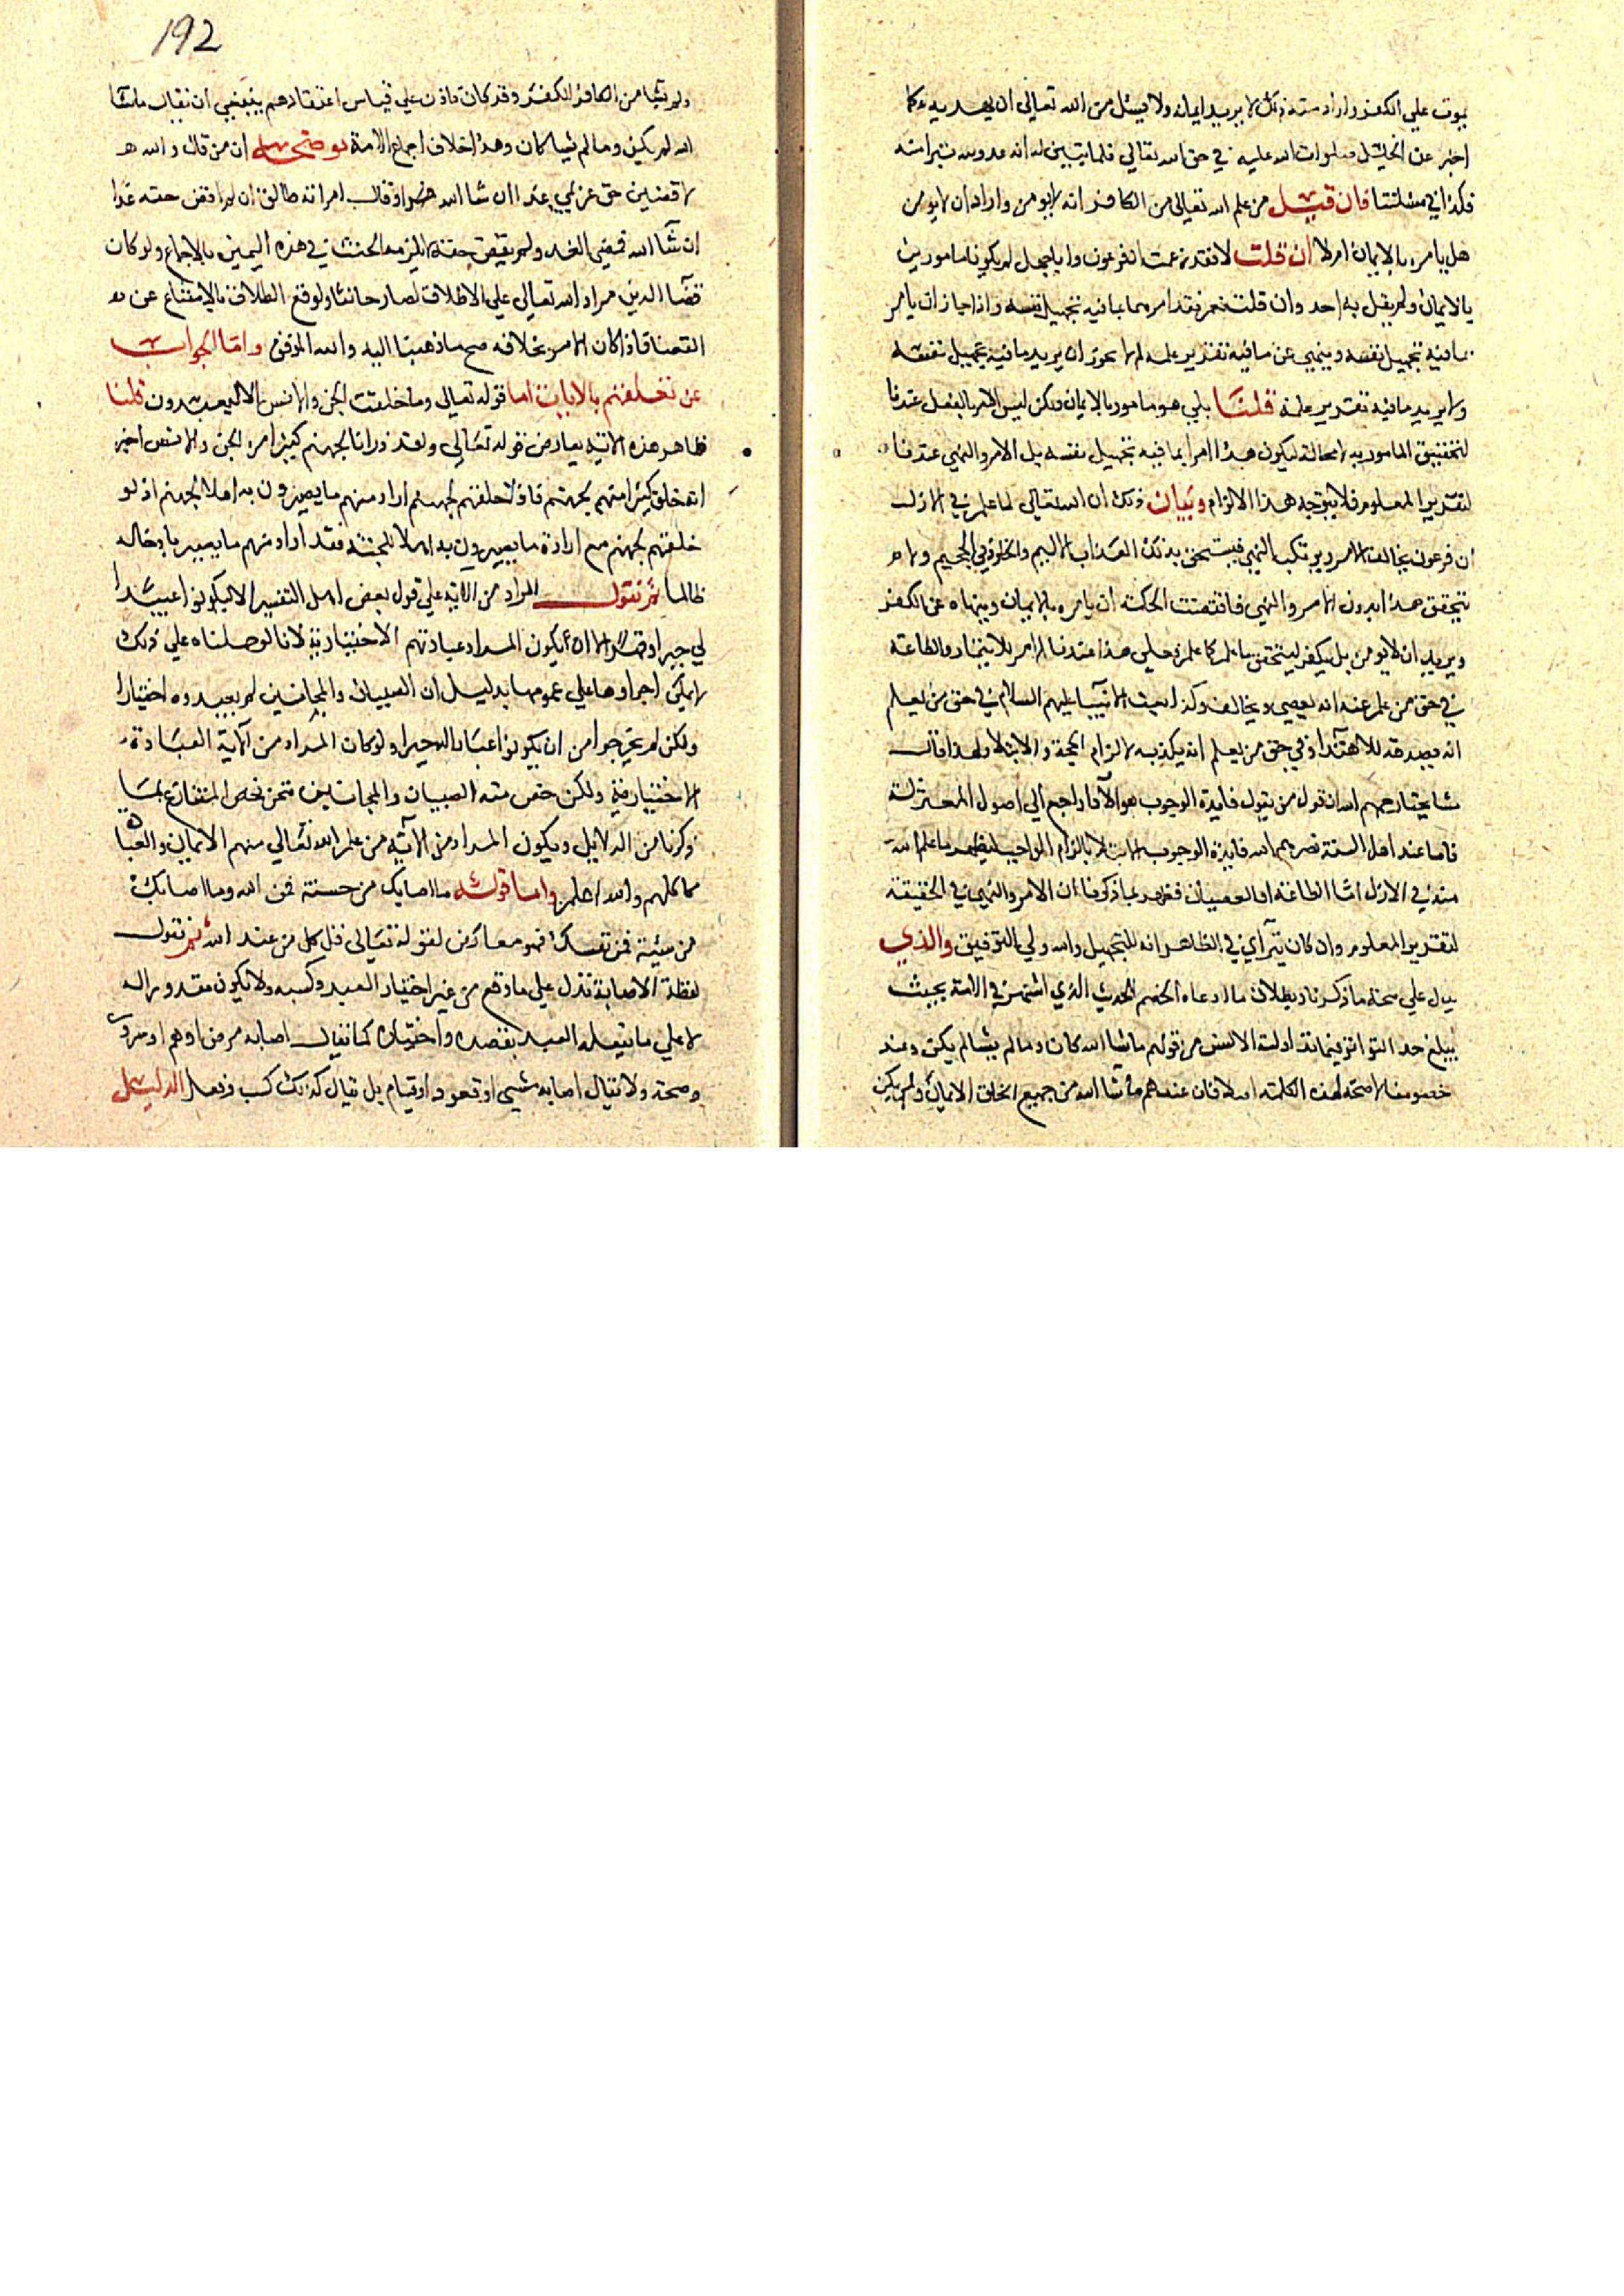 يموت علي الكفر واراد منه ذلك لا يريد ايمانه ولا يسئل من الله تعالى ان يهديه كما
اخبر عن الخليل صلوات الله عليه في حق ابيه تعالي فلما تبين له انه عدو لله تبرا منه
فكذا في مسئلتنا فان قيل من علم الله تعالى من الكافر انه لا يومن واراد ان لا يومن
هل يامره بالايمان ام لا ان قلت لا فقد زعمت ان فرعون وابا جهل لم يكونا مامورين
بالايمان ولم يقل به احد وان قلت نعم فقد امره بما فيه تجهيل نفسه واذا جاز ان يامر
بما فيه تجهيل نفسه وينهي عن ما فيه تقدير علمه لم لا يجوز ان يريد ما فيه تجهيل نفسه
ولا يريد ما فيه تقدير علمه قلنا بلي هو مامور بالايمان ولكن ليس الامر بالفعل عندنا
لتحقيق المامور به لا محالة ليكون هذا امرا بما فيه تجهيل نفسه بل الامر والنهي عندنا
لتقدير المعلوم فلا يتوجه هذا الالزام وبيان ذلك ان الله تعالي لما علم في الازل
ان فرعون يخالف الامر ويرتكب النهي فيستحق بذلك العذاب الاليم والخلود في الجحيم ولا
يتحقق هذا بدون الامر والنهي فاقتضت الحكمة ان يامره بالايمان وينهاه عن الكفر
ويريد ان لا يومن بل يكفر ليتحقق ما علم كما علم وعلي هذا عندنا الامر بالايتمار والطاعة
في حق من علم عنه انه يعصي ويخالف وكذا بعث الانبيا عليهم السلام في حق من يعلم
انه يصدقه للاهتدا وفي حق من يعلم انه يكذبه لالزام الحجة والابتلا ولهذا قال
مشايخنا رحمهم الله ان قول من يقول فايدة الوجوب هو الادا راجع الي اصول المعتزلة
فاما عند اهل السنة نصرهم الله فايدة الوجوب الابتلا بالزام الواجب ليظهر ما علم الله
منه في الازل اما الطاعة او العصيان فظهر بما ذكرنا ان الامر والنهي في الحقيقة
لتقدير المعلوم وان كان يترآي في الظاهر انه للتجهيل والله ولي التوفيق والذي
يدل علي صحة ما ذكرنا وبطلان ما ادعاه الخصم الحديث الذي اشتهر في الامة بحيث
يبلغ حد التواتر فيما تداولته الالسن من قولهم ما شا الله كان وما لم يشا لم يكن وعند
خصومنا لا صحة لهذه الكلمة اصلا فان عندهم ما شا الله من جميع الخلق الايمان ولم يكن
192
ولم يشا من الكافر الكفر وقد كان فاذن علي قياس اعتقادهم ينبغي ان يقال ما شا
الله لم يكن وما لم يشا كان وهذا خلاف اجماع الامة يوضحه ان من قال والله
لاقضين حق غريمي غدا ان شا الله او قال امراته طالق ان لم اقض حقه غدا
ان شا الله فمضي الغد ولم يقض حقه لا يلزمه الحنث في هذه اليمين بالاجماع ولو كان
قضا الدين مراد الله تعالي علي الاطلاق لصار حانثا ولوقع الطلاق بالامتناع عن
القضا فاذا كان الامر بخلافه صح ما ذهبنا اليه والله الموفق واما الجواب
عن تعلقهم بالايات اما قوله تعالي وما خلقت الجن والانس الا ليعبدون قلنا
ظاهر هذه الاية يعارض قوله تعالي ولقد ذرانا لجهنم كثيرا من الجن والانس اخبر
انه خلق كثيرا منهم لجهنم فاذا خلقهم لجهنم اراد منهم ما يصيرون به اهلا لجهنم اذ لو
خلقهم لجهنم مع ارادة ما يصيرون به اهلا للجنة فقد اراد منهم ما يصير بادخاله
ظالما ثم نقول المراد من الاية علي قول بعض اهل التفسير الا ليكونوا عبيدا
لي جبرا وقهرا الا ان يكون المراد عبادتهم الاختيارية لانا لو حملناه علي ذلك
لا يمكن اجراوها علي عمومها بدليل ان الصبيان والمجانين لم يعبدوه اختيارا
ولكن لم يخرجوا من ان يكونوا عبادا له جبرا ولو كان المراد من الآية العبادة
الاختيارية ولكن خص منه الصبيان والمجانين فنحن نخص المتنازع بما
ذكرنا من الدلايل ويكون المراد من الآية من علم الله تعالي منهم الايمان والعبادة
كلهم والله اعلم واما قوله ما اصابك من حسنة فمن الله وما اصابك
من سيئة فمن نفسك فهو معارض لقوله تعالي قل كل من عند الله ثم نقول
لفظة الاصابة تدل علي ما وقع من غير اختيار العبد وكسبه ولا يكون مقدورا له
لا علي ما يفعله العبد بقصده واختياره كما يقال اصابه مرض او هم او سرور
وصحة ولا يقال اصابه مشي او قعود او قيام بل يقال كذلك كسب وفعل الدليل